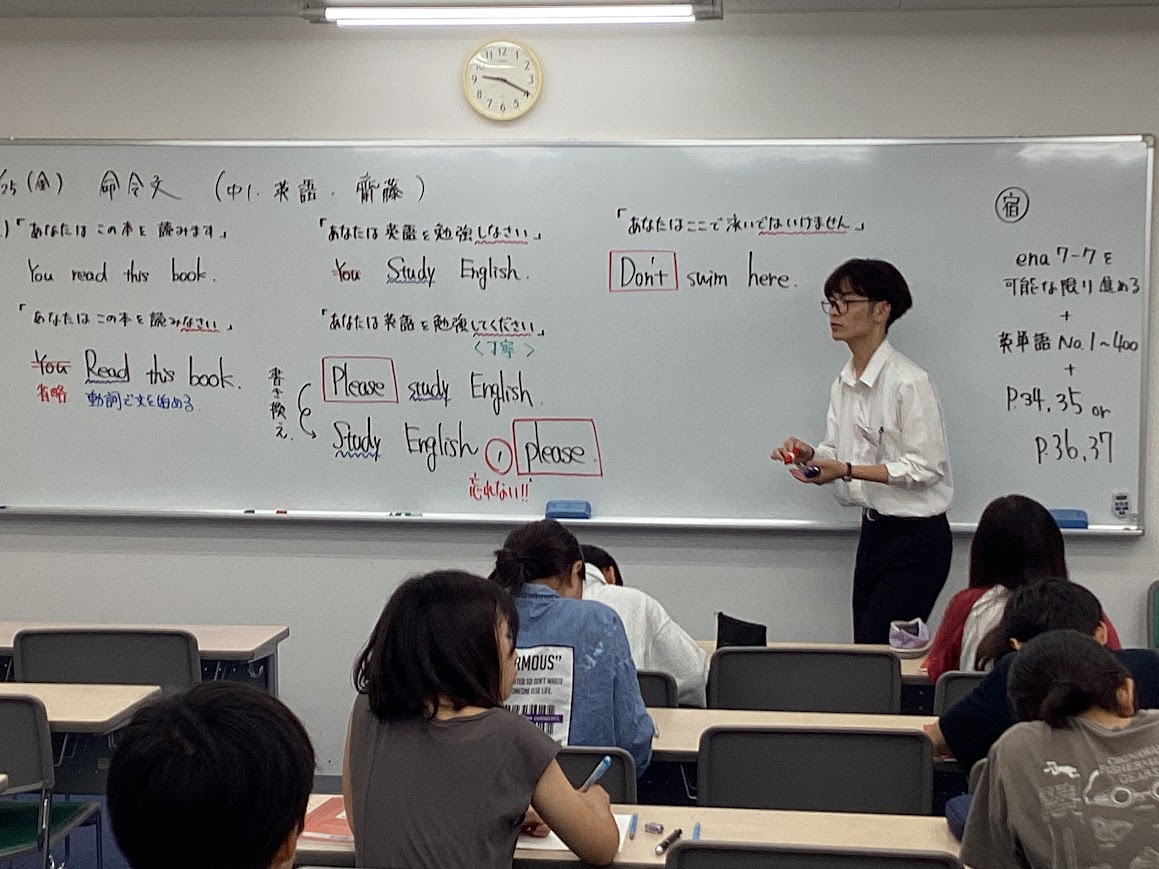 /25 (金) 命令文 (中1. 英語. 齊藤)
)「あなたは この本を 読みます」
You read this book.
「あなたは この本を 読みなさい」
You Read this book.
省略 動詞で文を始める
「あなたは 英語を勉強しなさい」
You Study English.
「あなたは 英語を勉強してください」
〈丁寧〉
Please study English.
書き換え.
Study English , please.
忘れない!!
「あなたはここで泳いではいけません」
Don't swim here.
宿
ena ワークを
可能な限り進める
+
英単語 No.1~400
+
P.34.35 or
P.36.37
11 12 1
10 2
9 3
8 4
7 6 5
RMOUS"
SOMEONE ELSE LIFE.
OKINAWA
FISHERMAN
GEAR